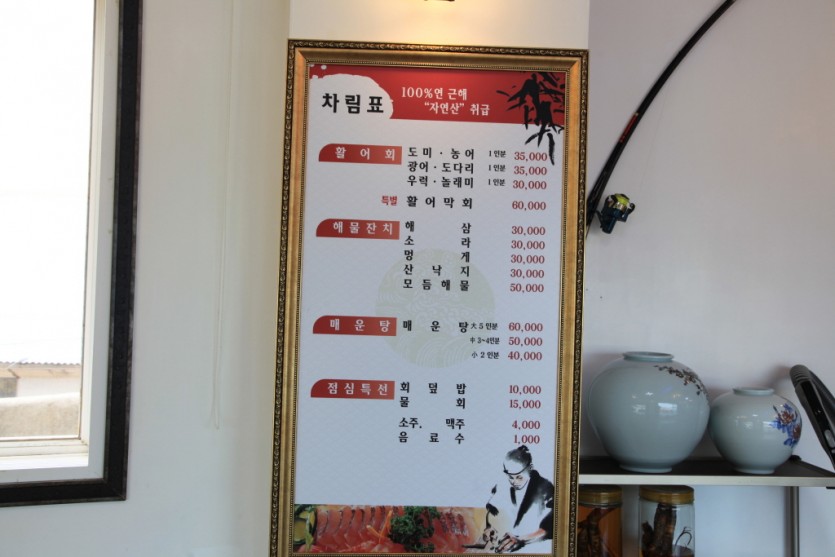 차림표
100%연 근해
"자연산" 취급
활어회 도미·농어 1인분 35,000
광어·도다리 1인분 35,000
우럭·놀래미 1인분 30,000
특별 활어막회 60,000
해물잔치 해삼 30,000
소라 30,000
멍게 30,000
산낙지 30,000
모듬해물 50,000
매운탕 매운탕 大 5인분 60,000
中 3~4인분 50,000
小 2인분 40,000
점심특선 회덮밥 10,000
물회 15,000
소주. 맥주 4,000
음료수 1,000